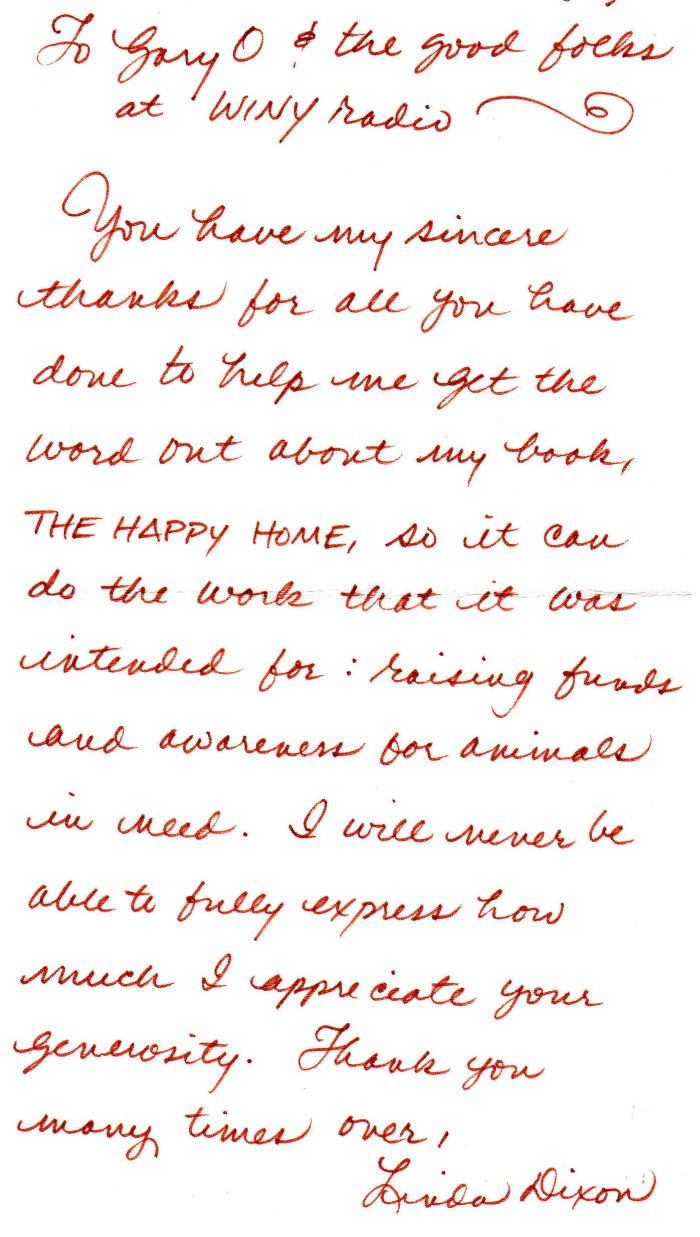 To Gary O & the good folks
at WINY radio
You have my sincere
thanks for all you have
done to help me get the
word out about my book,
THE HAPPY HOME, so it can
do the work that it was
intended for: raising funds
and awareness for animals
in need. I will never be
able to fully express how
much I appreciate your
generosity. Thank you
many times over,
Linda Dixon